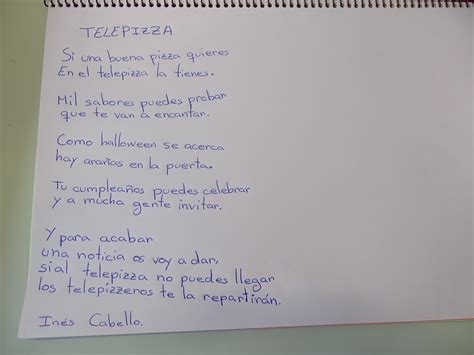 TELEPIZZA
Si una buena pizza quieres
En el telepizza la tienes.
Mil sabores puedes probar
que te van a encantar.
Como halloween se acerca
hay arañas en la puerta.
Tu cumpleaños puedes celebrar
y a mucha gente invitar.
Y para acabar
una noticia os voy a dar,
si al telepizza no puedes llegar
los telepizzeros te la repartirán.
Inés Cabello.